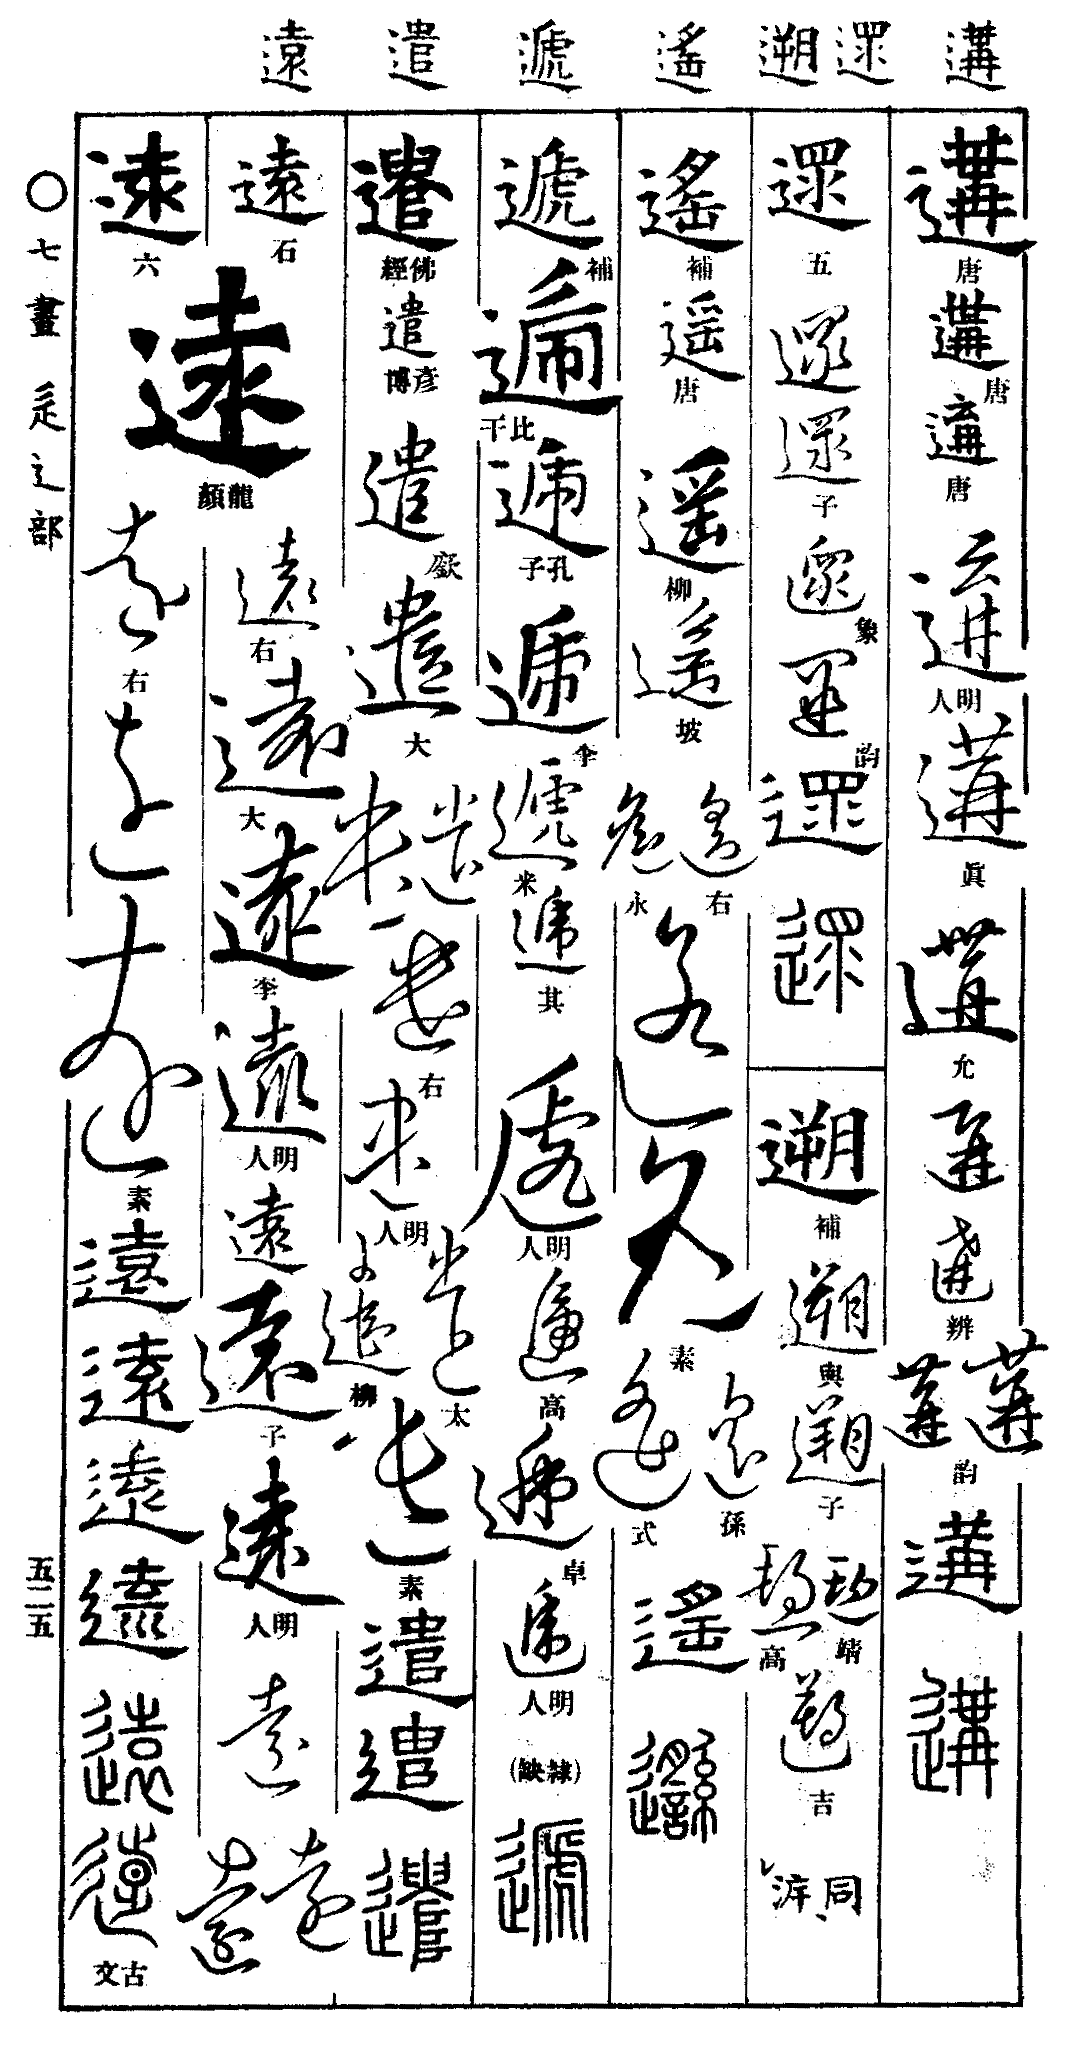 遘 遝 遡 遙 遞 遣 遠
遘
唐
遘
唐
遘
唐
遘
明人
遘
眞
遘
允
遘
遘
辨
遘 遘
韵
遘
遘
遝
五
遝
遝
子
遝
象
遝
韵
遝
遝
遡
補
遡
與
遡
子
靖
高
吉
同 泝
遙
補
遙
唐
遙
柳
遙
坡
遙 遙
右 永
遙
遙
素
遙 遙
孫 式
遙
遙
遞
補
遞
比干
遞
孔子
遞
李
遞
米
遞
其
遞
明人
遞
高
遞
卓
遞
明人
(隸缺)
遞
遣
佛經
遣
彥博
遣
歐
遣
大
遣 遣
遣
右
遣
明人
遣 遣
太 柳
遣
素
遣
遣
遣
遠
石
遠
右
遠
大
遠
李
遠
明人
遠
遠
子
遠
明人
遠
遠 遠
遠
六
遠
龍顏
遠
右
遠
遠
素
遠
遠
遠
遠
遠
遠
古文
〇七畫 辵辶部
五二五